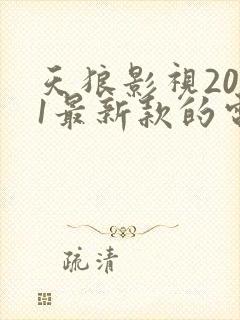 天狼影視20
1最新款的
疏清